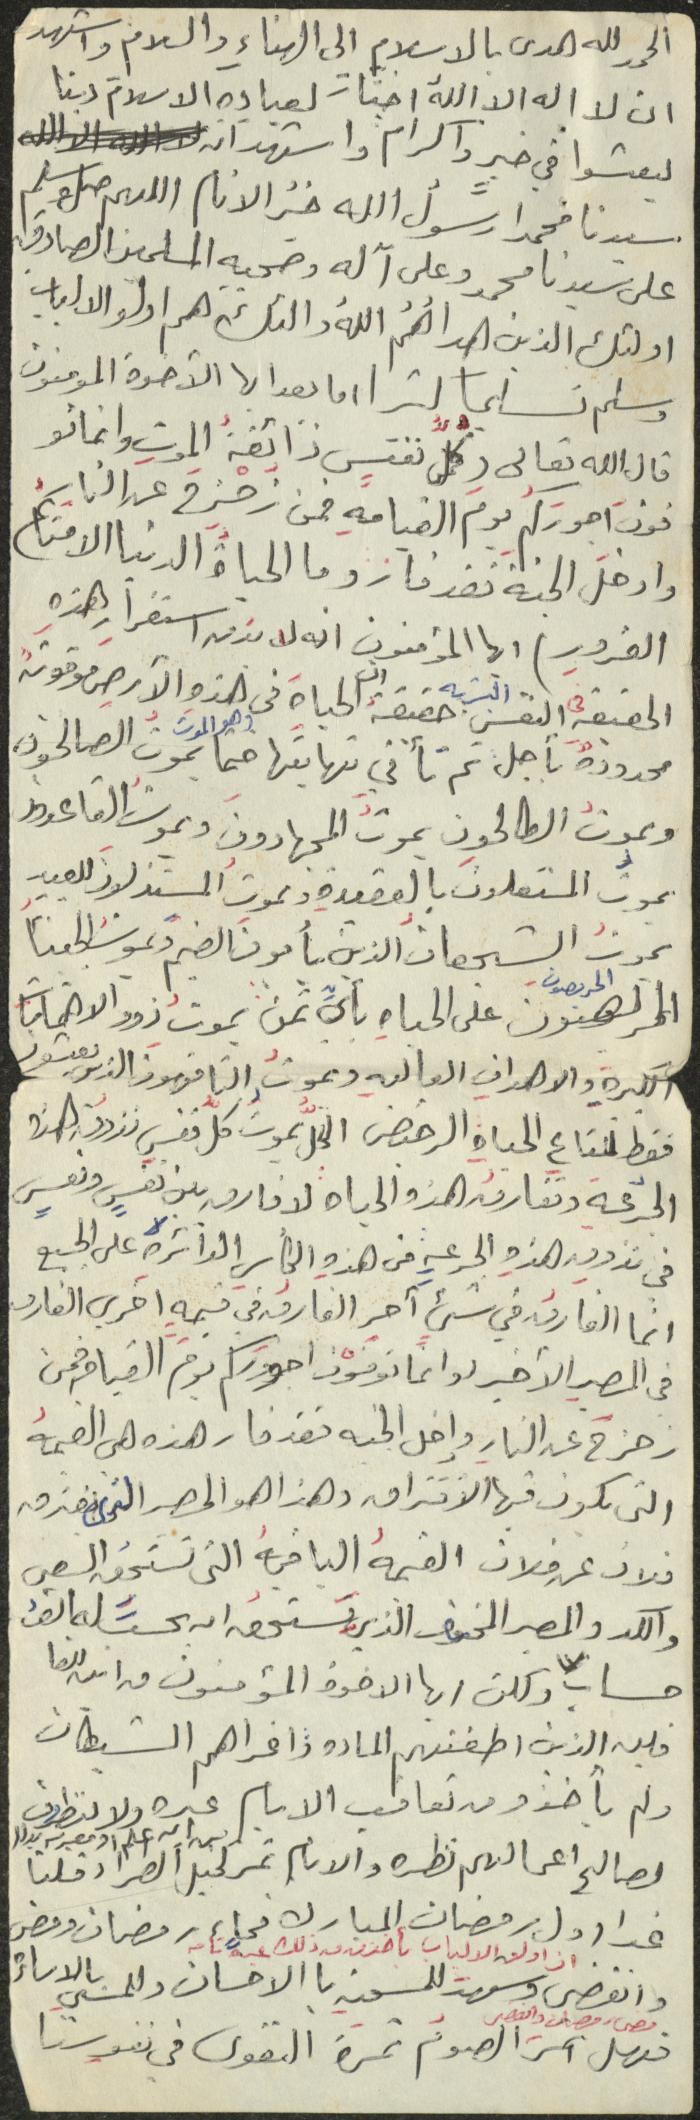 الحمد لله هدى بالاسلام الى الهناء والسلام واشهد
ان لا اله الا الله اختار لعباده الاسلام دينا
ليعيشوا في خيرٍ واكرام واشهد ان لا اله الا الله
سيدنا محمدا رسول الله خير الانام اللهم صل وسلم
على سيدنا محمد وعلى آله وصحبه المسلمين الصادقين
اولئك الذين هداهُم اللهُ واولئك هم اولو الالباب
وسلم تسليما كثيرا اما بعد ايها الأخوة المومنون
قال الله تعالى (كلُّ نفسٍ ذائقةُ الموتِ وانما تو
فونَ اجورَكُم يومَ القيامةِ فمن زُحْزِحَ عن النارِ
وادخلَ الجنةَ فقد فاز وما الحياةُ الدنيا الا متاعُ
الغرورِ) ايها المؤمنون انه لا بد من استقرارِ هذهِ
الحقيقةِ في النفس البشريه حقيقةُ ان الحياةَ في هذهِ الأرضِ موقوتةٌ
محدودةٌ بأجل ثم تأتي نهايتها حتما وهو الموت يموتُ الصالحون
ويموتُ الطالحون يموتُ المجاهدونَ ويموتُ القاعدون
يموتُ المستعلون بالعقيدةِ ويموتُ المستذلون للعبيد
يموتُ الشجعانُ الذين يأبون الضيم ويموتُ الجبناءُ
الحريصون على الحياةِ بأيِّ ثمن يموتُ ذوو الاهتماماتِ
الكبيرةِ والاهدافِ العاليه ويموتُ التافهون الذين يعيشون
فقط للمتاعِ الحياةِ الرخيص الكلُّ يموتُ كلُّ نفسٍ تذوقُ هذه
الجرعةَ وتفارقُ هذهِ الحياة لا فارق بين نفسٍ ونفسٍ
في تذوق هذهِ الجرعةِ من هذهِ الكأسِ الدائرةِ على الجميع
انما الفارق في شيءٍ آخر الفارق في قيمةٍ اخرى الفارق
في المصيرِ الأخير (وانما توفونَ اجورَكم يومَ القيامة فمن
زحزحَ عن النارِ وادخل الجنه فقد فاز هذه هي القيمةُ
التي يكون فيها الافتراق وهذا هو المصير الذي يفترق
فلان عن فلان القيمةُ الباقيةُ التي تستحق السعي
والكد والمصير المخوف الذي يستحق ان يحسبَ له الفُ
حساب ولكن ايها الاخوة المؤمنون
الذين اطغتهم الماده واغراهم الشيطان
ولم يأخذو من تعاقب الايام عبره ولا ينظرون
لصالح اعمالهم نظره والايام تمر
غدا اول رمضان المبارك فجاء رمضان ومضى
ان اولي الالباب يأخذون من ذلك عبرة
وانقضى وشهد للمحسنين بالاحسان وللمسيء بالاساءة
مضى رمضان وانقضى
فهل اثمرَ الصومُ ثمرةَ التقوى في نفوسنا